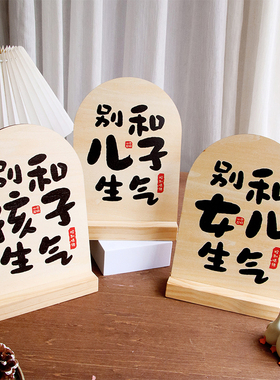 别和
孩子
生气
别和
儿子
生气
别和
女儿
生气